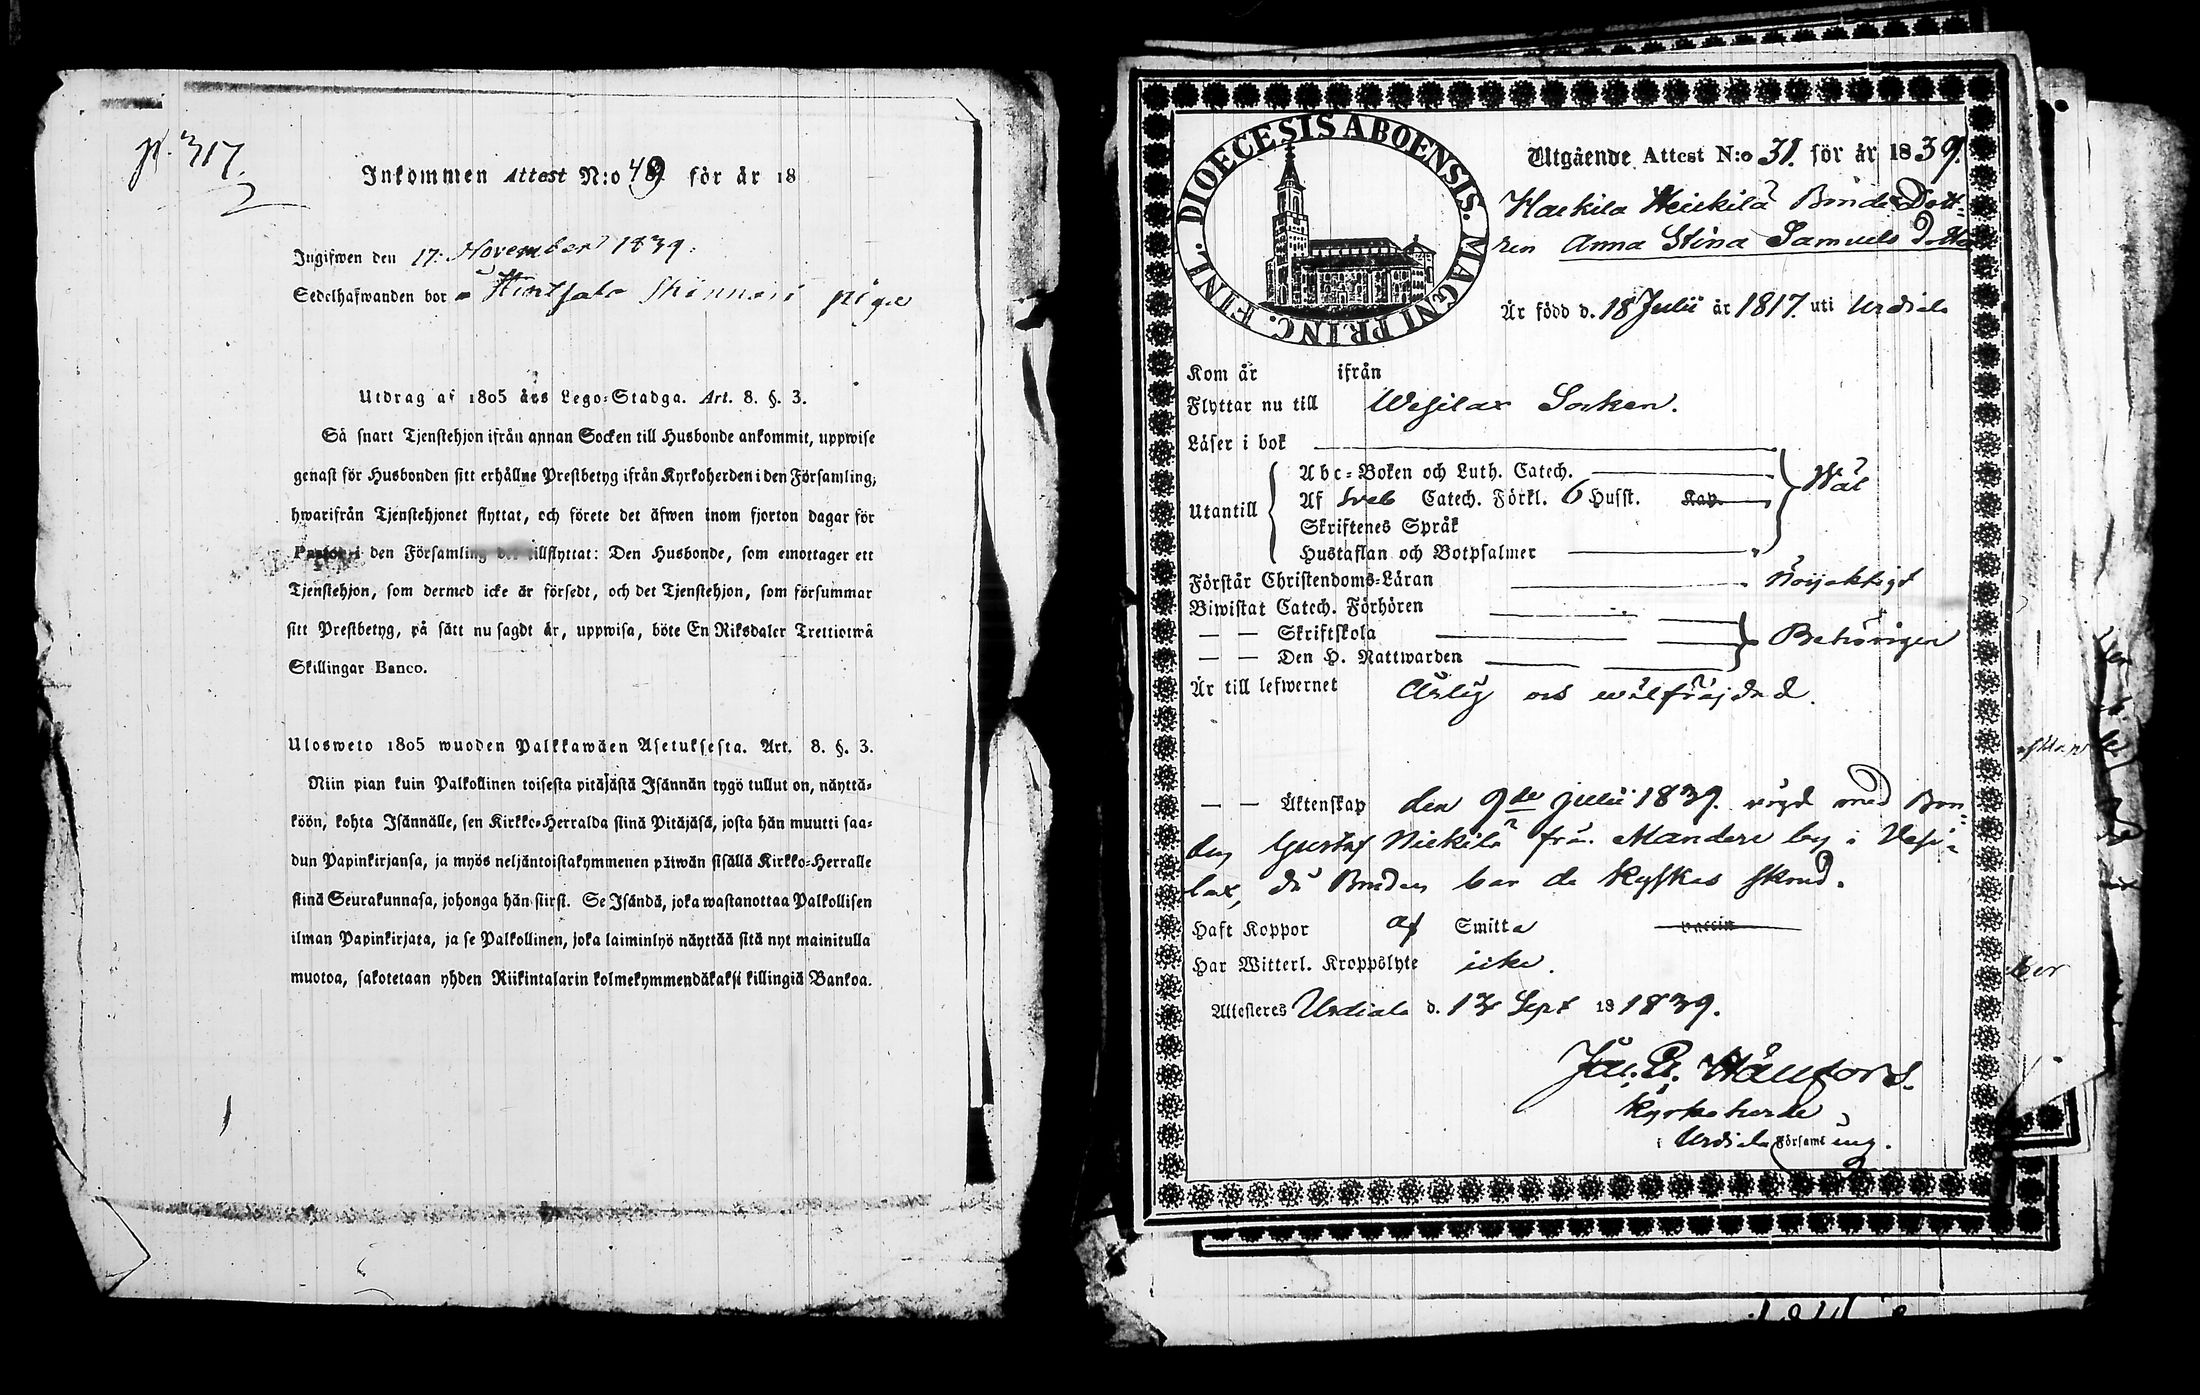 p. 317.
Inkommen Attest N:o 49 för år 18
Ingifwen den 17. November 1839.
Sedelhafwanden bor Skinnari piga
Utdrag af 1805 års Lego-Stadga. Art. 8. §. 3.
Så snart Tjenstehjon ifrån annan Socken till Husbonde ankommit, uppwise
genast för Husbonden sitt erhållne Prestbetyg ifrån Kyrkoherden i den Församling,
hwarifrån Tjenstehjonet flyttat, och förete det äfwen inom fjorton dagar för
Pastor i den Församling det tillflyttat: Den Husbonde, som emottager ett
Tjenstehjon, som dermed icke är försedt, och det Tjenstehjon, som försummar
sitt Prestbetyg, på sätt nu sagdt är, uppwisa, böte En Riksdaler Trettiotwå
Skillingar Banco.
Ulosweto 1805 wuoden Palkkawäen Asetuksesta. Art. 8. §. 3.
Niin pian kuin Palkollinen toisesta pitäjästä Isännän tygö tullut on, näyttä-
köön, kohta Isännälle, sen Kirkko-Herralda siinä Pitäjäsä, josta hän muutti saa-
dun Papinkirjansa, ja myös neljäntoistakymmenen päiwän sisällä Kirkko-Herralle
siinä Seurakunnasa, johonga hän siirsi. Se Isändä, joka wastanottaa Palkollisen
ilman Papinkirjata, ja se Palkollinen, joka laiminlyö näyttää sitä nyt mainitulla
muotoa, sakotetaan yhden Riikintalarin kolmekymmendäkaksi killingiä Bankoa.
DIOECESIS ABOENSIS. MAGNI PRINC. FINL.
Utgående Attest N:o 31. för år 1839.
Heikilä Bonde Dott-
ren Anna Stina Samuels Dotter
Är född d. 18 Julii år 1817. uti Urdiala
Kom år ifrån
Flyttar nu till Wesilax Socken.
Läser i bok
Utantill
Abc-Boken och Luth. Catech.
Af Sveb Catech. Förkl. O Husst. Kap.
Skriftenes Språk
Hustaflan och Botpsalmer
Wäl
Förstår Christendoms-Läran Nöijaktigt
Biwistat Catech. Förhören
— — Skriftskola
— — Den H. Nattwarden
Behörigen
Är till lefwernet Ärlig och wälfräjdad.
— — Äktenskap den 9de Julii 1839. vigd med Bon-
den Gustaf Nickilä frå. Mandere by i Vesi-
lax, då Bruden bar de kyskas skrud.
Haft Koppor af Smitta vaccin
Har Witterl. Kroppslyte icke.
Attesteres Urdiala d. 13 Sept 18 1839.
Kyrkoherde
i Urdiala Församling.